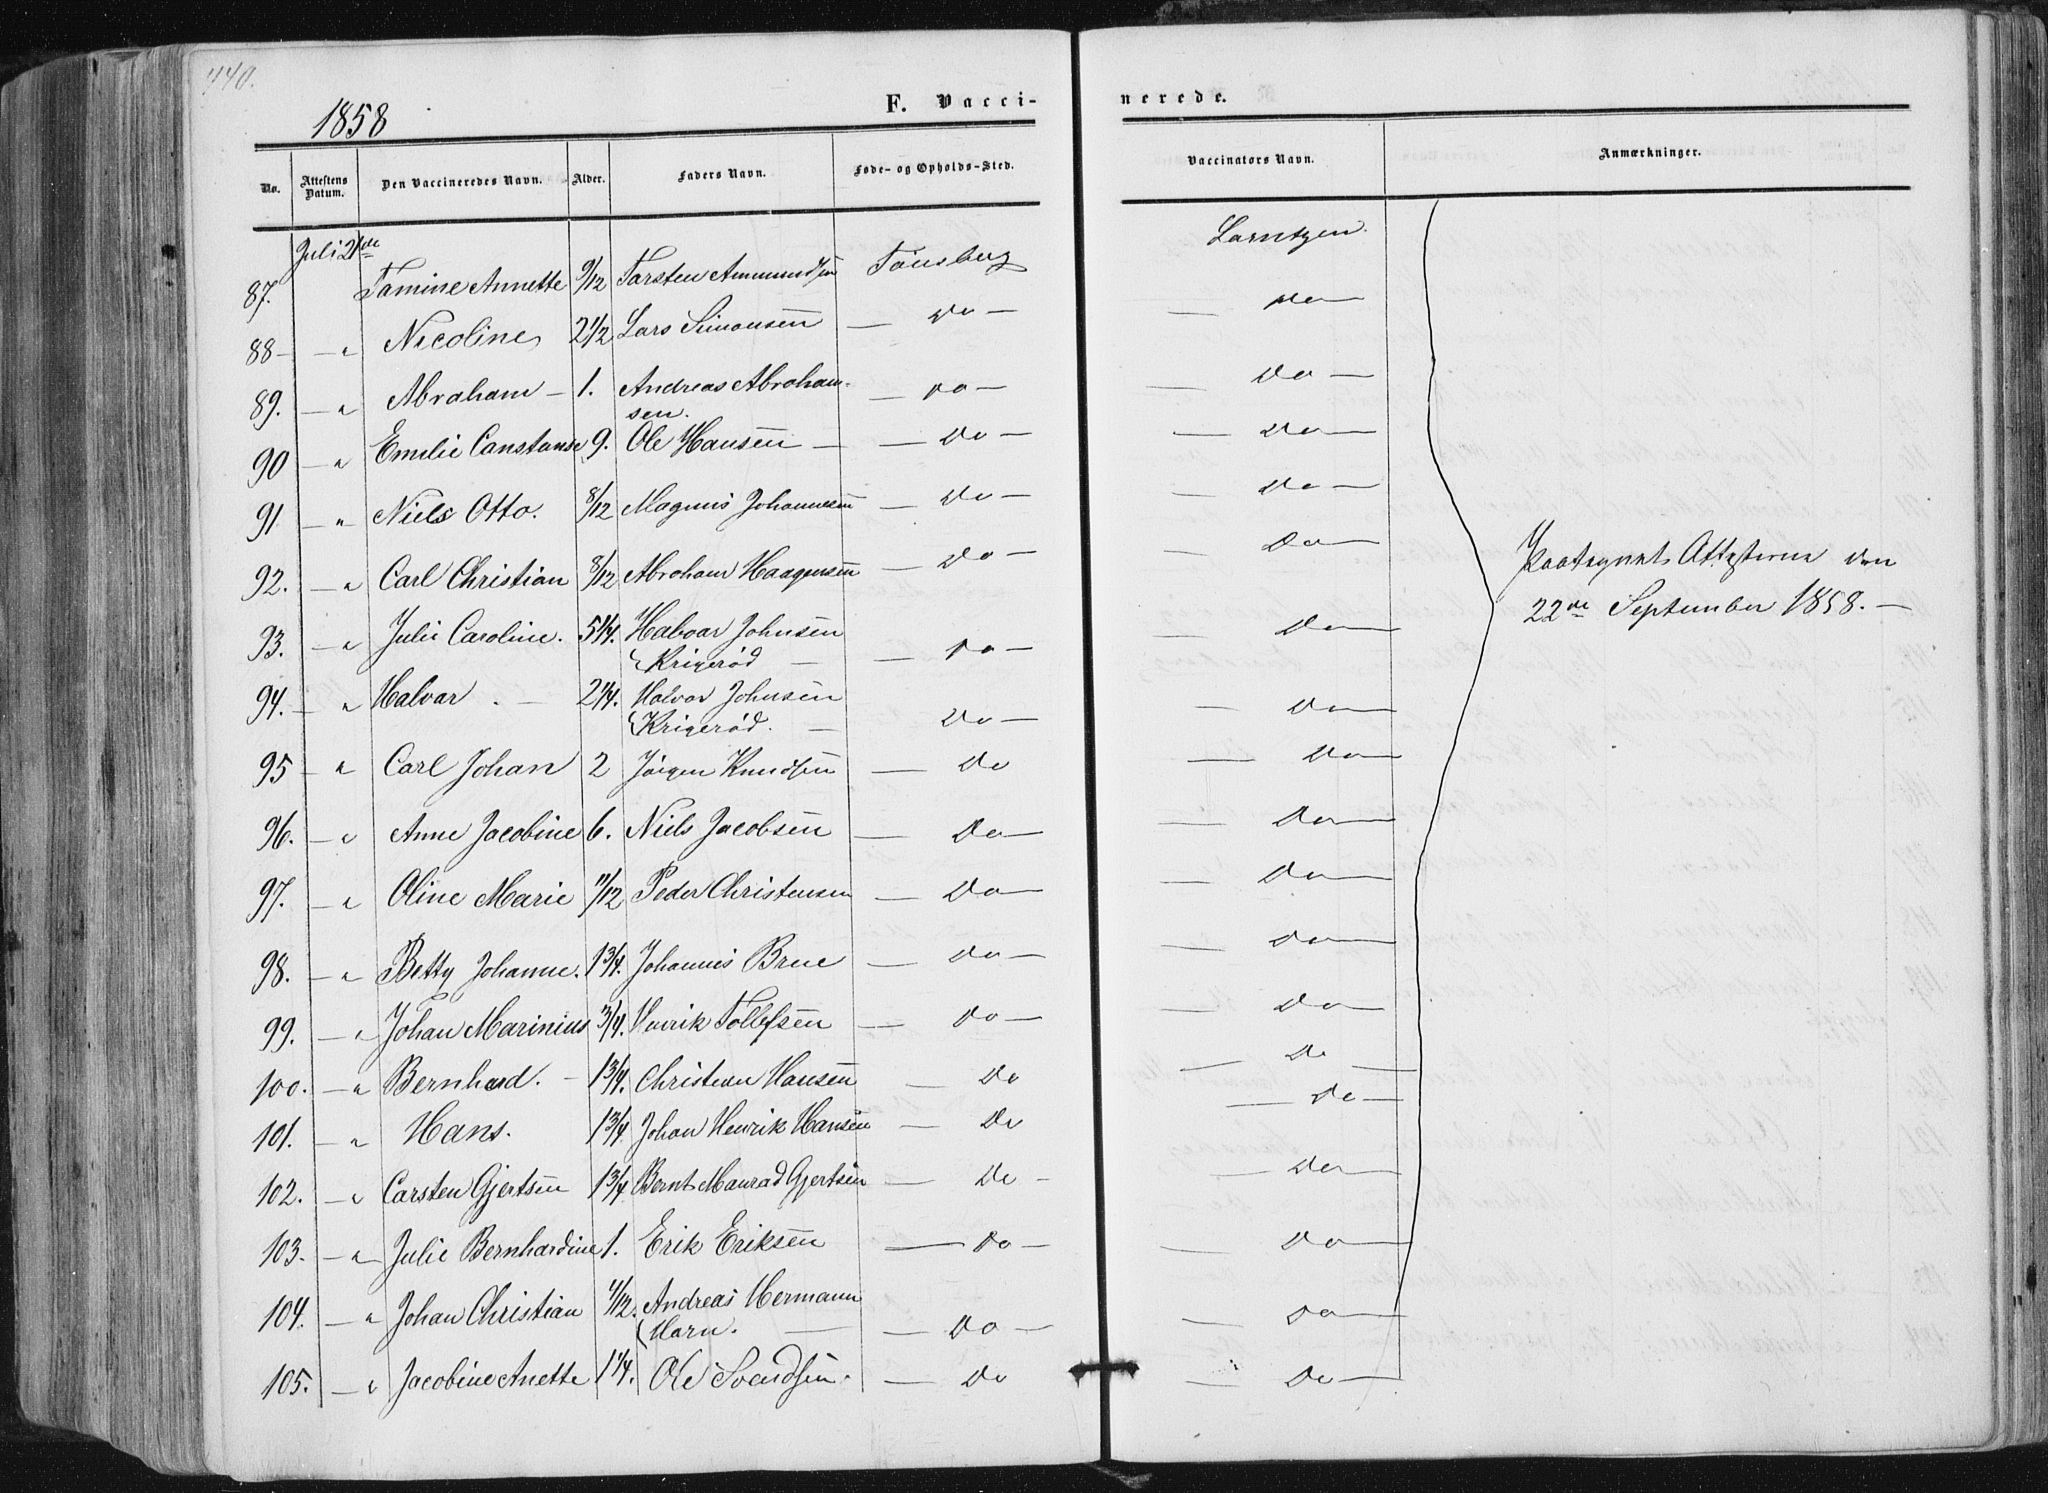 440.
1858
F. Vacci-
nerede.
No. Attestens Datum. Den Vaccineredes Navn. Alder. Faders Navn. Føde- og Opholds-Sted. Vaccinators Navn. Anmærkninger.
Juli 21de
87. Tomine Annette 9/12 Torsten Ammundsen Tönsberg Lorntzen.
88 — " Nicoline 2 1/2 Lars Simonsen — Do — — Do —
89. — " Abraham — 1. Andreas Abraham-
sen. — Do — — Do —
90 — " Emilie Constanse 9. Ole Hansen — — Do — — Do —
91. — " Niels Otto. 8/12 Magnus Johannesen — Do — — Do —
92. — " Carl Christian 8/12 Abraham Haagensen — Do — — Do —
Modtaget Attesterne den
22de September 1858. —
93. — " Julie Caroline. 5 1/4. Halvor Johnsen
Krigerød — — Do — — Do —
94. — " Halvor. — 2 1/4. Halvor Johnsen
Krigerød. — Do — — Do —
95 — " Carl Johan 2 Jörgen Knudsen — Do — Do —
96. — " Anne Jacobine 6. Niels Jacobsen — Do — — Do —
97. — " Oline Marie 11/12 Peder Christensen — Do — — Do —
98. — " Betty Johanne. 1 3/4. Johannis Brue — Do — — Do —
99. — " Johan Marinius 3/4. Henrik Tollefsen — Do — — Do —
100. — " Bernhard. — 1 3/4. Christian Hansen — Do — Do —
101. — " Hans. 1 3/4 Johan Henrik Hansen — Do — Do —
102. — " Carsten Gjertsen 1 3/4 Bernt Manrad Gjertsen — Do — — Do —
103. — " Julie Bernhardine 1. Erik Eriksen — Do — — Do —
104. — " Johan Christian 4/12. Andreas Hermann
Horn. — — Do — — Do —
105. — " Jacobine Anette 1 1/4. Ole Svendsen. — Do — Do —